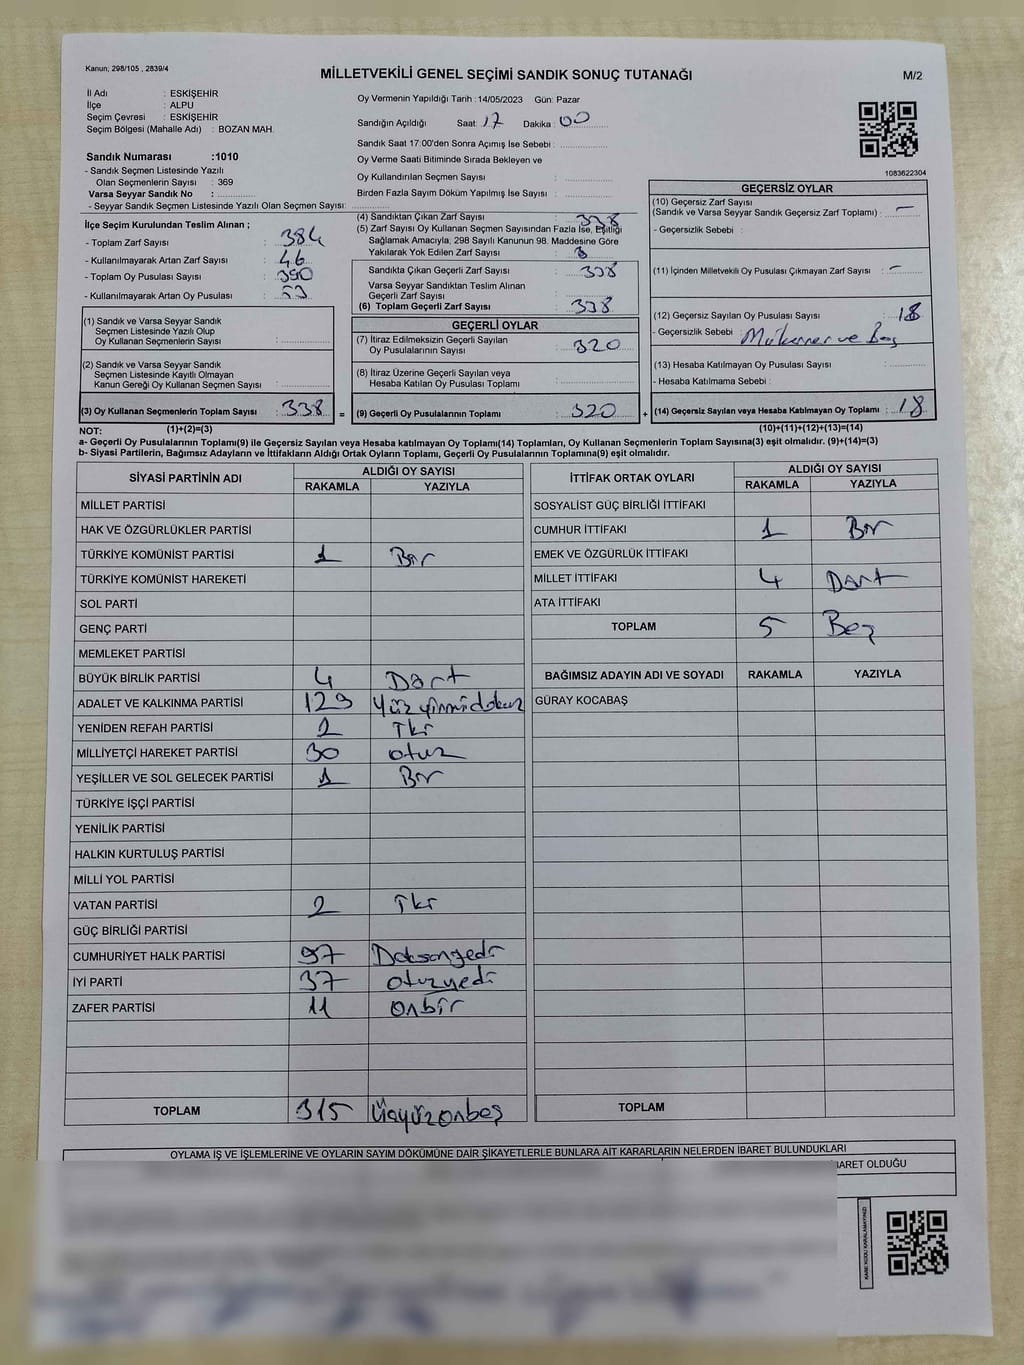 Kanun; 298/105 , 2839/4
MİLLETVEKİLİ GENEL SEÇİMİ SANDIK SONUÇ TUTANAĞI
M/2
İl Adı : ESKİŞEHİR
İlçe : ALPU
Seçim Çevresi : ESKİŞEHİR
Seçim Bölgesi (Mahalle Adı) : BOZAN MAH.
Oy Vermenin Yapıldığı Tarih : 14/05/2023 Gün: Pazar
Sandığın Açıldığı Saat: 17 Dakika : 00
Sandık Saat 17:00'den Sonra Açımış İse Sebebi :
Oy Verme Saati Bitiminde Sırada Bekleyen ve
Oy Kullandırılan Seçmen Sayısı :
Birden Fazla Sayım Döküm Yapılmış İse Sayısı :
Sandık Numarası :1010
- Sandık Seçmen Listesinde Yazılı
Olan Seçmenlerin Sayısı : 369
Varsa Seyyar Sandık No :
- Seyyar Sandık Seçmen Listesinde Yazılı Olan Seçmen Sayısı:
1083622304
İlçe Seçim Kurulundan Teslim Alınan ;
- Toplam Zarf Sayısı : 384
- Kullanılmayarak Artan Zarf Sayısı : 46
- Toplam Oy Pusulası Sayısı : 390
- Kullanılmayarak Artan Oy Pusulası :
(1) Sandık ve Varsa Seyyar Sandık
Seçmen Listesinde Yazılı Olup
Oy Kullanan Seçmenlerin Sayısı :
(2) Sandık ve Varsa Seyyar Sandık
Seçmen Listesinde Kayıtlı Olmayan
Kanun Gereği Oy Kullanan Seçmen Sayısı :
(3) Oy Kullanan Seçmenlerin Toplam Sayısı : 338 =
(4) Sandıktan Çıkan Zarf Sayısı : 338
(5) Zarf Sayısı Oy Kullanan Seçmen Sayısından Fazla İse, Eşitliği
Sağlamak Amacıyla, 298 Sayılı Kanunun 98. Maddesine Göre
Yakılarak Yok Edilen Zarf Sayısı :
Sandıkta Çıkan Geçerli Zarf Sayısı : 338
Varsa Seyyar Sandıktan Teslim Alınan
Geçerli Zarf Sayısı :
(6) Toplam Geçerli Zarf Sayısı : 338
GEÇERLİ OYLAR
(7) İtiraz Edilmeksizin Geçerli Sayılan
Oy Pusulalarının Sayısı : 320
(8) İtiraz Üzerine Geçerli Sayılan veya
Hesaba Katılan Oy Pusulası Toplamı :
(9) Geçerli Oy Pusulalarının Toplamı : 320 +
GEÇERSİZ OYLAR
(10) Geçersiz Zarf Sayısı
(Sandık ve Varsa Seyyar Sandık Geçersiz Zarf Toplamı) : –
- Geçersizlik Sebebi :
(11) İçinden Milletvekili Oy Pusulası Çıkmayan Zarf Sayısı : –
(12) Geçersiz Sayılan Oy Pusulası Sayısı : 18
- Geçersizlik Sebebi : ve Boş
(13) Hesaba Katılmayan Oy Pusulası Sayısı :
- Hesaba Katılmama Sebebi :
(14) Geçersiz Sayılan veya Hesaba Katılmayan Oy Toplamı : 18
NOT: (1)+(2)=(3) (10)+(11)+(12)+(13)=(14)
a- Geçerli Oy Pusulalarının Toplamı(9) ile Geçersiz Sayılan veya Hesaba katılmayan Oy Toplamı(14) Toplamları, Oy Kullanan Seçmenlerin Toplam Sayısına(3) eşit olmalıdır. (9)+(14)=(3)
b- Siyasi Partilerin, Bağımsız Adayların ve İttifakların Aldığı Ortak Oyların Toplamı, Geçerli Oy Pusulalarının Toplamına(9) eşit olmalıdır.
SİYASİ PARTİNİN ADI ALDIĞI OY SAYISI
RAKAMLA YAZIYLA
MİLLET PARTİSİ
HAK VE ÖZGÜRLÜKLER PARTİSİ
TÜRKİYE KOMÜNİST PARTİSİ 1 Bir
TÜRKİYE KOMÜNİST HAREKETİ
SOL PARTİ
GENÇ PARTİ
MEMLEKET PARTİSİ
BÜYÜK BİRLİK PARTİSİ 4 Dört
ADALET VE KALKINMA PARTİSİ 129 Yüzyirmidokuz
YENİDEN REFAH PARTİSİ 2 İki
MİLLİYETÇİ HAREKET PARTİSİ 30 otuz
YEŞİLLER VE SOL GELECEK PARTİSİ 1 Bir
TÜRKİYE İŞÇİ PARTİSİ
YENİLİK PARTİSİ
HALKIN KURTULUŞ PARTİSİ
MİLLİ YOL PARTİSİ
VATAN PARTİSİ 2 İki
GÜÇ BİRLİĞİ PARTİSİ
CUMHURİYET HALK PARTİSİ 97 Doksanyedi
İYİ PARTİ 37 otuzyedi
ZAFER PARTİSİ 11 Onbir
TOPLAM 315 Üçyüzonbeş
İTTİFAK ORTAK OYLARI ALDIĞI OY SAYISI
RAKAMLA YAZIYLA
SOSYALİST GÜÇ BİRLİĞİ İTTİFAKI
CUMHUR İTTİFAKI 1 Bir
EMEK VE ÖZGÜRLÜK İTTİFAKI
MİLLET İTTİFAKI 4 Dört
ATA İTTİFAKI
TOPLAM 5 Beş
BAĞIMSIZ ADAYIN ADI VE SOYADI RAKAMLA YAZIYLA
GÜRAY KOCABAŞ
TOPLAM
OYLAMA İŞ VE İŞLEMLERİNE VE OYLARIN SAYIM DÖKÜMÜNE DAİR ŞİKAYETLERLE BUNLARA AİT KARARLARIN NELERDEN İBARET BULUNDUKLARI
BARET OLDUĞU
KARE KODU KARALAMAYINIZ!